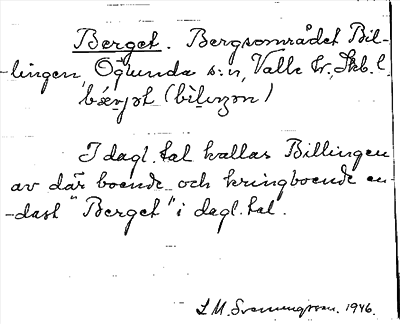 Berget. Bergsområdet Bil-
-lingen, Öglunda s:n, Valle hr., Skb. l.
bærjət (bìlıŋən)
I dagl. tal kallas Billingen
av där boende och kringboende en-
-dast "Berget" i dagl. tal.
L M. Svenungsson. 1946.